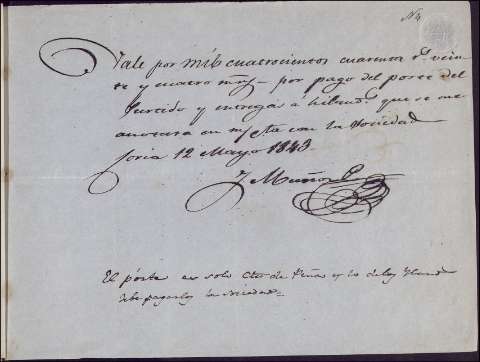 Vale por mil cuatrocientos cuarenta r.s vein-
te y cuatro mrs. por pago del porte del
Surtido y entregas á hiland.s que se me
anotara en m/ cta con la Sociedad
Soria 12 Mayo 1843.
J Muñoz
El porte es solo Cta de Peña y lo de las
debe pagarlo la Sociedad